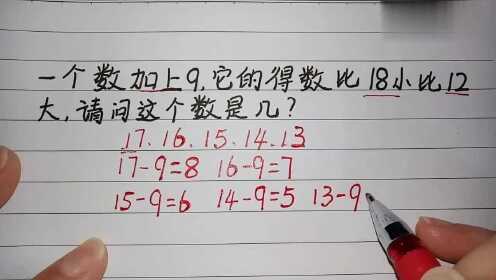 一个数加上9,它的得数比18小比12
大,请问这个数是几?
17、16、15、14、13
17-9=8 16-9=7
15-9=6 14-9=5 13-9